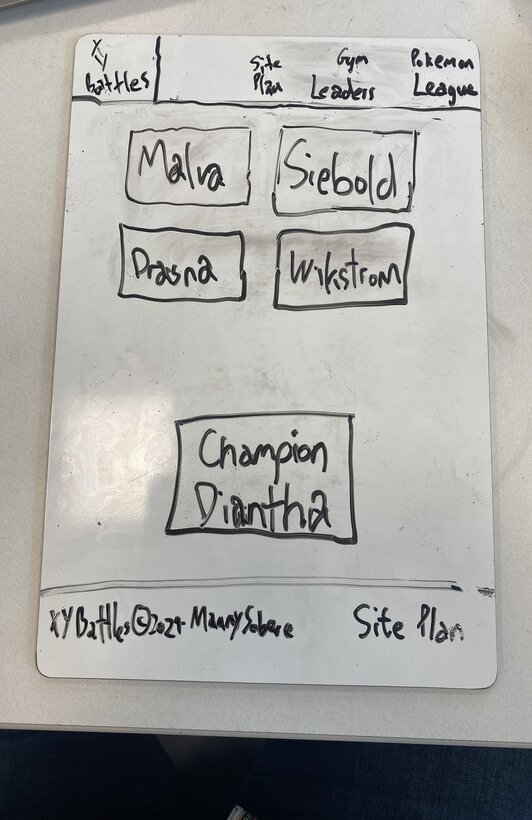 XY Battles
Site Plan
Gym Leaders
Pokemon League
Malva
Siebold
Drasna
Wikstrom
Champion
Diantha
XY Battles©2024 Manny Sobere
Site Plan